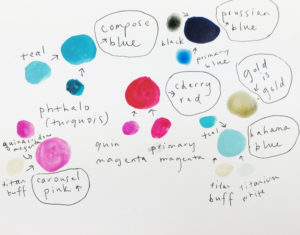 teal
compose
blue
phthalo
(turquois)
quinacridone
magenta
titan
buff
carousel
pink
black
prussian
blue
primary
blue
cherry
red
quin
magenta
primary
magenta
gold
is
gold
teal
bahama
blue
titan
buff
titanium
white